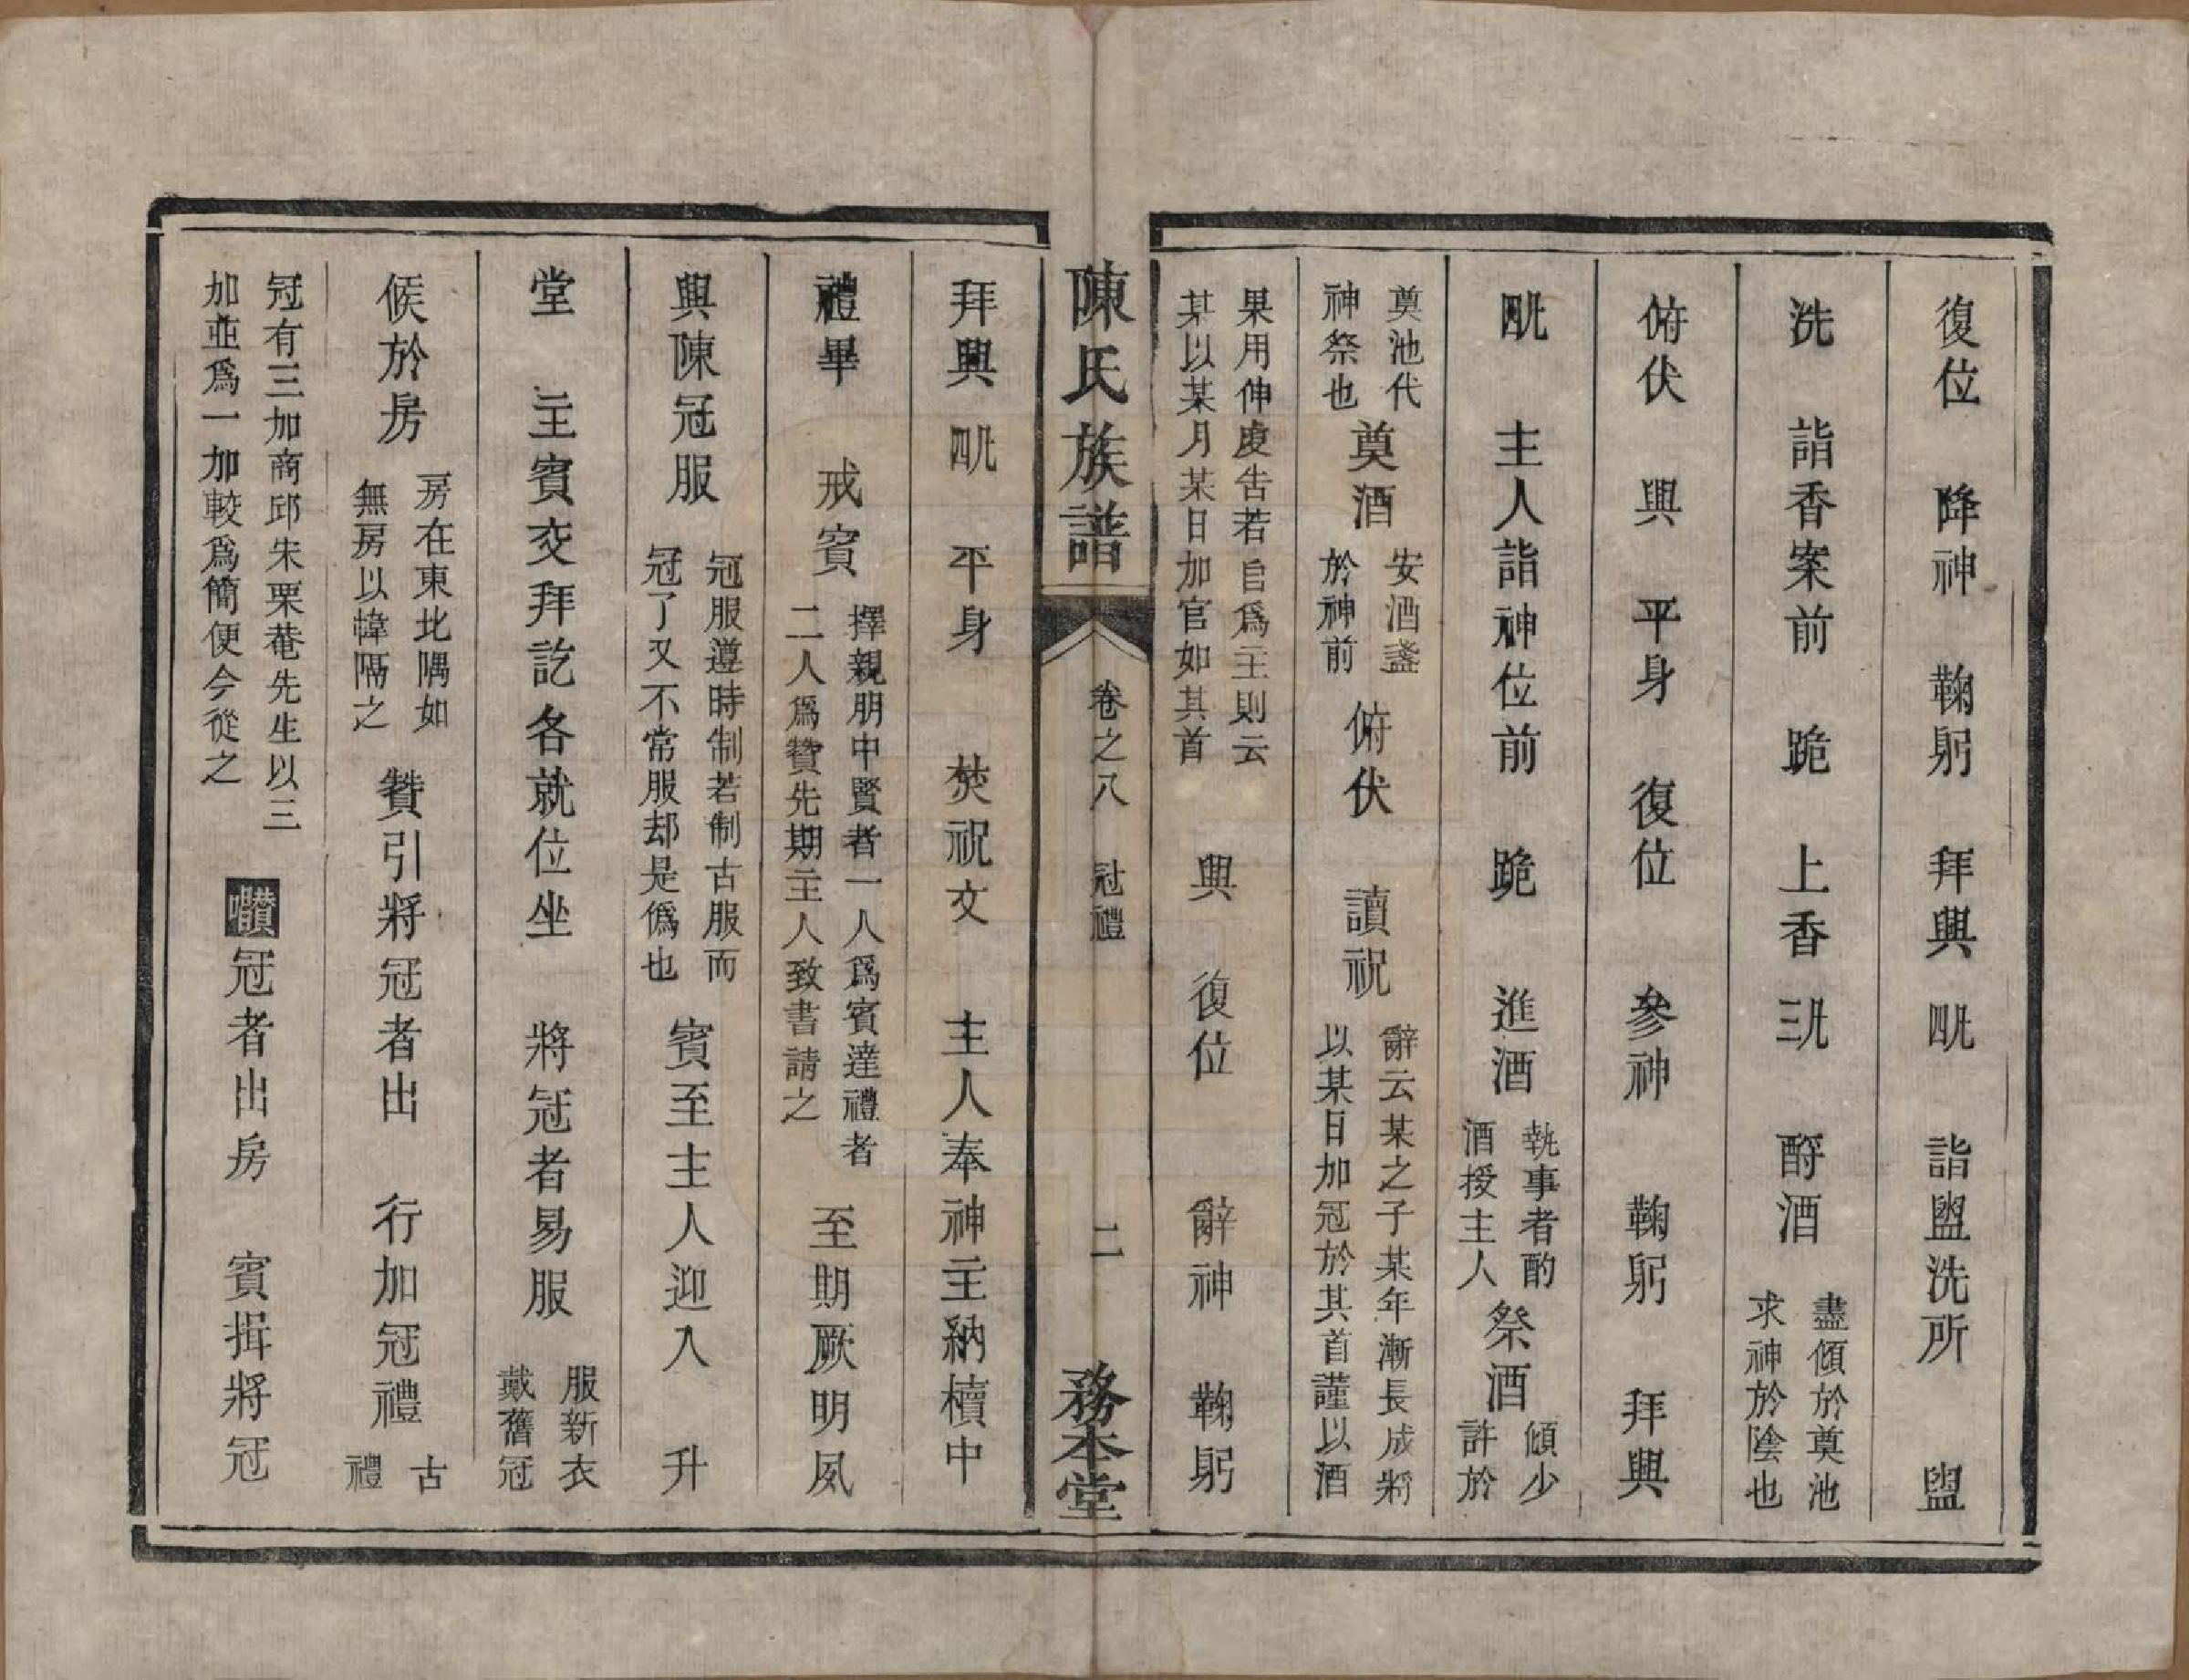 復位　降神　鞠躬　拜興　四　詣盥洗所　盥
洗　詣香案前　跪　上香三　酹酒　盡傾於奠池求神於陰也
俯伏　興　平身　復位　參神　鞠躬　拜興
四　主人詣神位前　跪　進酒　執事者酌酒授主人　祭酒　傾少許於
奠池代神祭也　奠酒　安酒盞於神前　俯伏　讀祝　辭云某之子某年漸長成將以某日加冠於其首謹以酒
果用伸虔告若自爲主則云某以某月某日加官如其首　興　復位　辭神　鞠躬
陳氏族譜　卷之八　冠禮　二　務本堂
拜興　四　平身　焚祝文　主人奉神主納櫝中
禮畢　戒賓　擇親朋中賢者一人爲賓達禮者二人爲贊先期主人致書請之　至期厥明夙
興陳冠服　冠服遵時制若制古服而冠了又不常服却是僞也　賓至主人迎入　升
堂　主賓交拜訖各就位坐　將冠者易服　服新衣戴舊冠
候於房　房在東北隅如無房以幃隔之　贊引將冠者出　行加冠禮　古禮
冠有三加商邱朱栗菴先生以三加並爲一加較爲簡便今從之　囋冠者出房　賓揖將冠